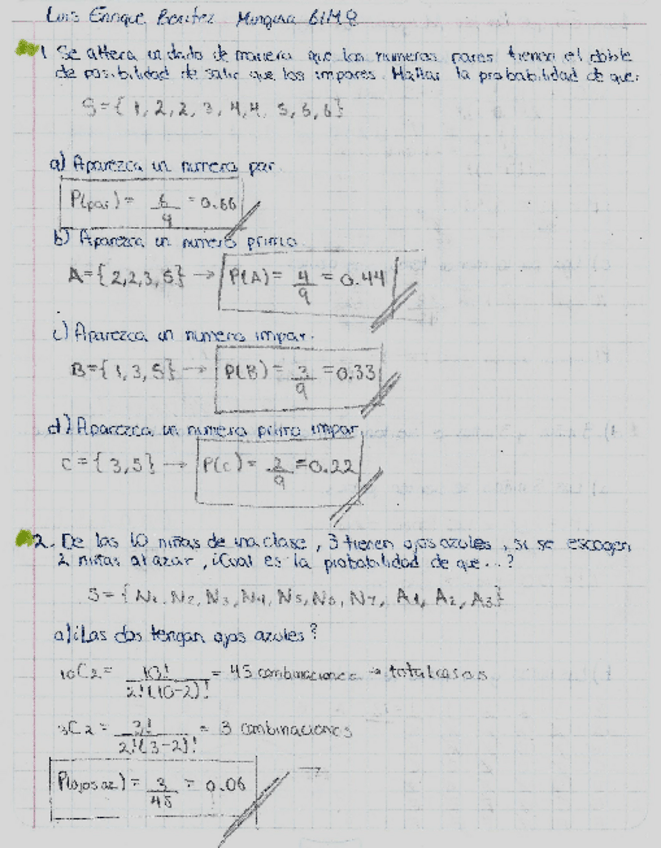 Luis Enrique Benitez Mungura 6IM9
1 Se altera un dado de manera que los numeros pares tienen el doble
de posibilidad de salir que los impares. Hallar la probabilidad de que:
S={ 1, 2, 2, 3, 4, 4, 5, 6, 6}
a) Aparezca un numero par.
P(par) = 6/9 = 0.66
b) Aparezca un numero primo
A={2,2,3,5} → P(A) = 4/9 = 0.44
c) Aparezca un numero impar.
B={1,3,5} → P(B) = 3/9 = 0.33
d) Aparezca un numero primo impar
C={3,5} → P(C) = 2/9 = 0.22
2. De las 10 niñas de una clase, 3 tienen ojos azules, si se escogen
2 niñas al azar, ¿Cual es la probabilidad de que...?
S={N1, N2, N3, N4, N5, N6, N7, A1, A2, A3}
a) ¿Las dos tengan ojos azules?
10C2 = 10!/2!(10-2)! = 45 combinaciones → total casos
3C2 = 3!/2!(3-2)! = 3 combinaciones
P(ojos az) = 3/45 = 0.06